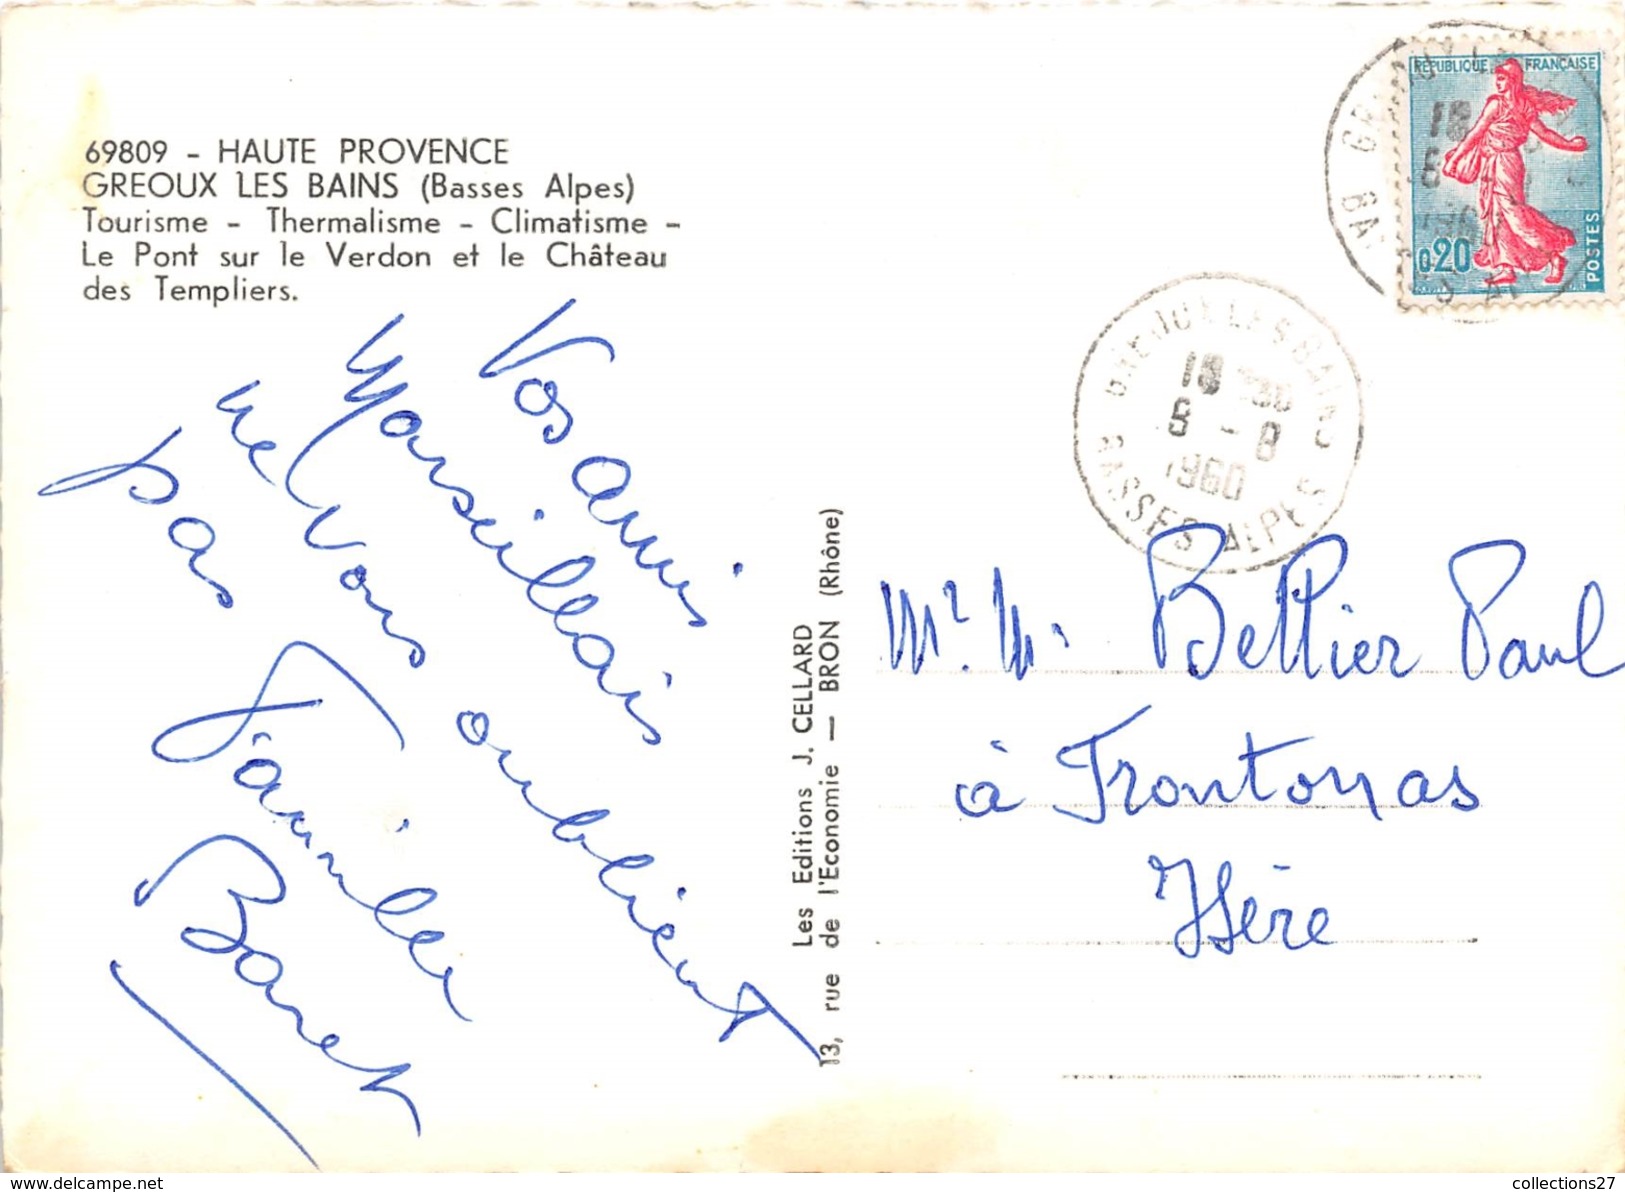 69809 - HAUTE PROVENCE
GREOUX LES BAINS (Basses Alpes)
Tourisme - Thermalisme - Climatisme -
Le Pont sur le Verdon et le Château
des Templiers.
Vos amis
Marseillais
ne vous oublient
pas
Famille
Baret
Les Editions J. CELLARD
13, rue de l'Economie — BRON (Rhône)
REPUBLIQUE FRANÇAISE
0,20
POSTES
GREOUX LES BAINS
18 30
6 - 8
1960
BASSES ALPES
Mr. M. Bellier Paul
à Frontonas
Isère
collections27
www.delcampe.net